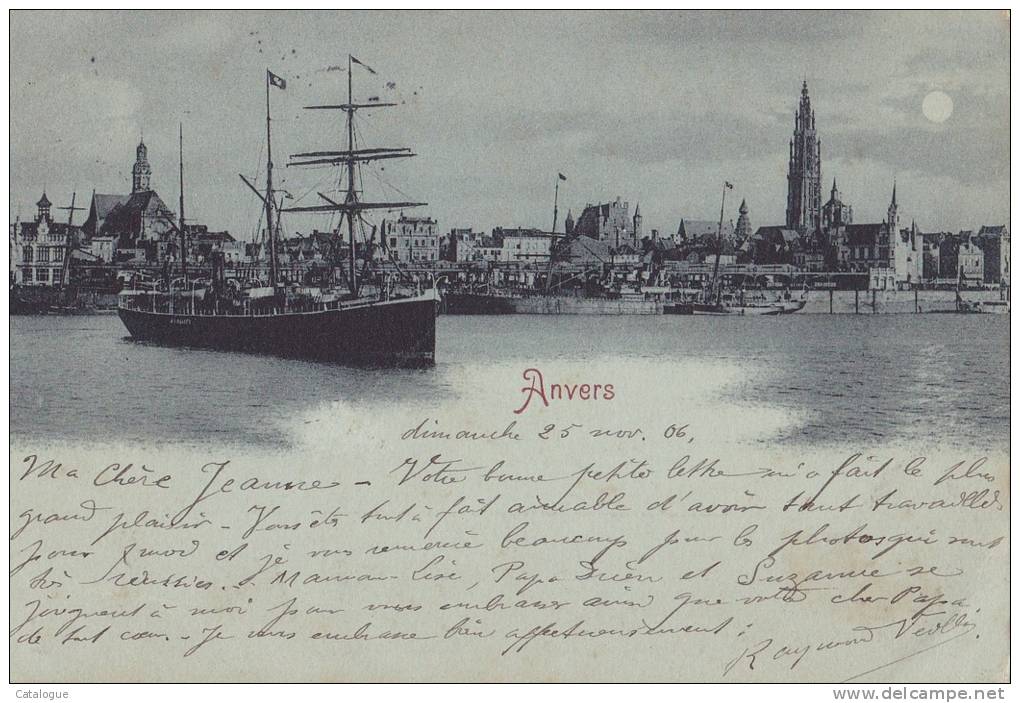 Anvers
dimanche 25 nov. 06,
Ma Chère Jeanne - Votre bonne petite lettre m'a fait le plus
grand plaisir - Vous êtes tout à fait aimable d'avoir tant travaillé
pour et je vous remercie beaucoup pour les photos qui sont
très réussies. - Maman-Lise, Papa et Suzanne se
joignent à moi pour vous embrasser ainsi que votre cher Papa.
de tout cœur. - Je vous embrasse bien affectueusement:
Raymond
Catalogue
delcampe.net